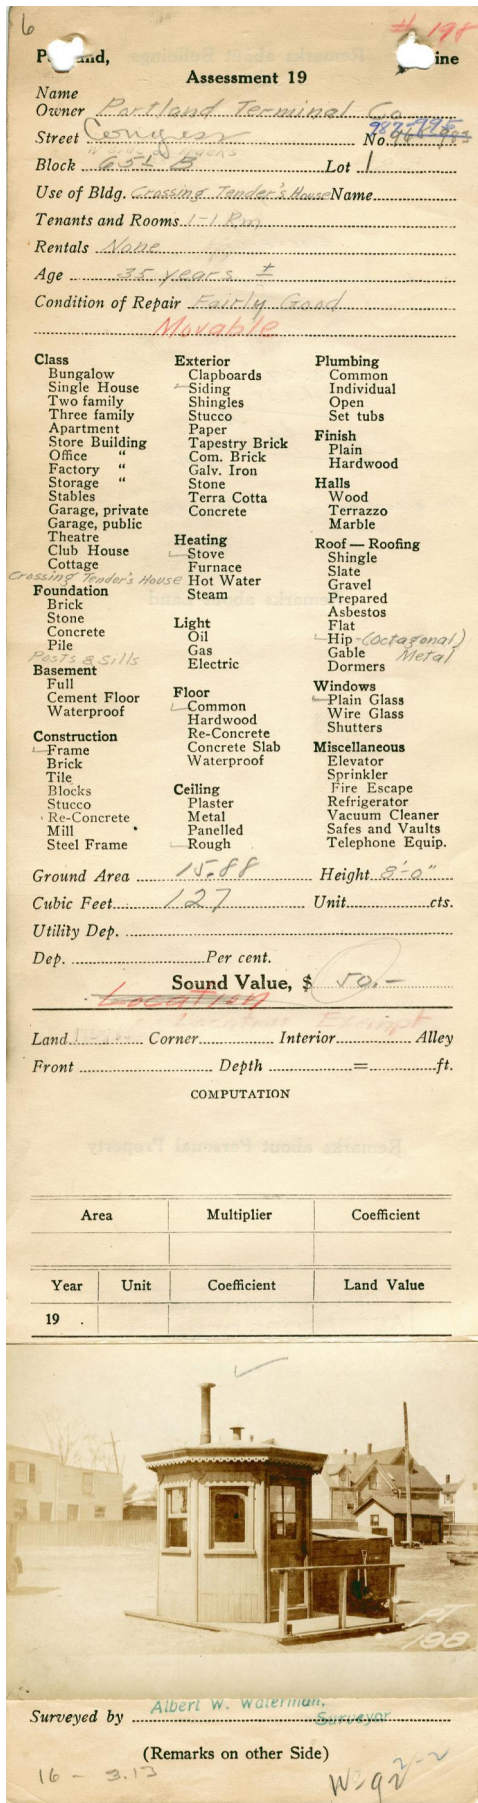 6
# 198
P nd, ine
Assessment 19
Name
Owner Portland Terminal Co
987-995
Street Congress No.
W Side of Tracks
Block 65½ B Lot 1
Use of Bldg. Crossing Tender's House Name
Tenants and Rooms 1-1 Rm
Rentals None
Age 35 years ±
Condition of Repair Fairly Good
Movable
Class
Bungalow
Single House
Two family
Three family
Apartment
Store Building
Office "
Factory "
Storage "
Stables
Garage, private
Garage, public
Theatre
Club House
Cottage
Crossing Tender's House
Foundation
Brick
Stone
Concrete
Pile
Posts & Sills
Basement
Full
Cement Floor
Waterproof
Construction
Frame
Brick
Tile
Blocks
Stucco
Re-Concrete
Mill
Steel Frame
Exterior
Clapboards
Siding
Shingles
Stucco
Paper
Tapestry Brick
Com. Brick
Galv. Iron
Stone
Terra Cotta
Concrete
Heating
Stove
Furnace
Hot Water
Steam
Light
Oil
Gas
Electric
Floor
Common
Hardwood
Re-Concrete
Concrete Slab
Waterproof
Ceiling
Plaster
Metal
Panelled
Rough
Plumbing
Common
Individual
Open
Set tubs
Finish
Plain
Hardwood
Halls
Wood
Terrazzo
Marble
Roof — Roofing
Shingle
Slate
Gravel
Prepared
Asbestos
Flat
Hip - (Octagonal)
Gable Metal
Dormers
Windows
Plain Glass
Wire Glass
Shutters
Miscellaneous
Elevator
Sprinkler
Fire Escape
Refrigerator
Vacuum Cleaner
Safes and Vaults
Telephone Equip.
Ground Area 15.88 Height 8'-0"
Cubic Feet 127 Unit cts.
Utility Dep.
Dep. Per cent.
Sound Value, $ 50.-
Location
Exempt
Land Corner Interior Alley
Front Depth = ft.
COMPUTATION
Area Multiplier Coefficient
Year Unit Coefficient Land Value
19 .
PT
198
Surveyed by Albert W. Waterman,
Surveyor
(Remarks on other Side)
16 - 3.13
2-2